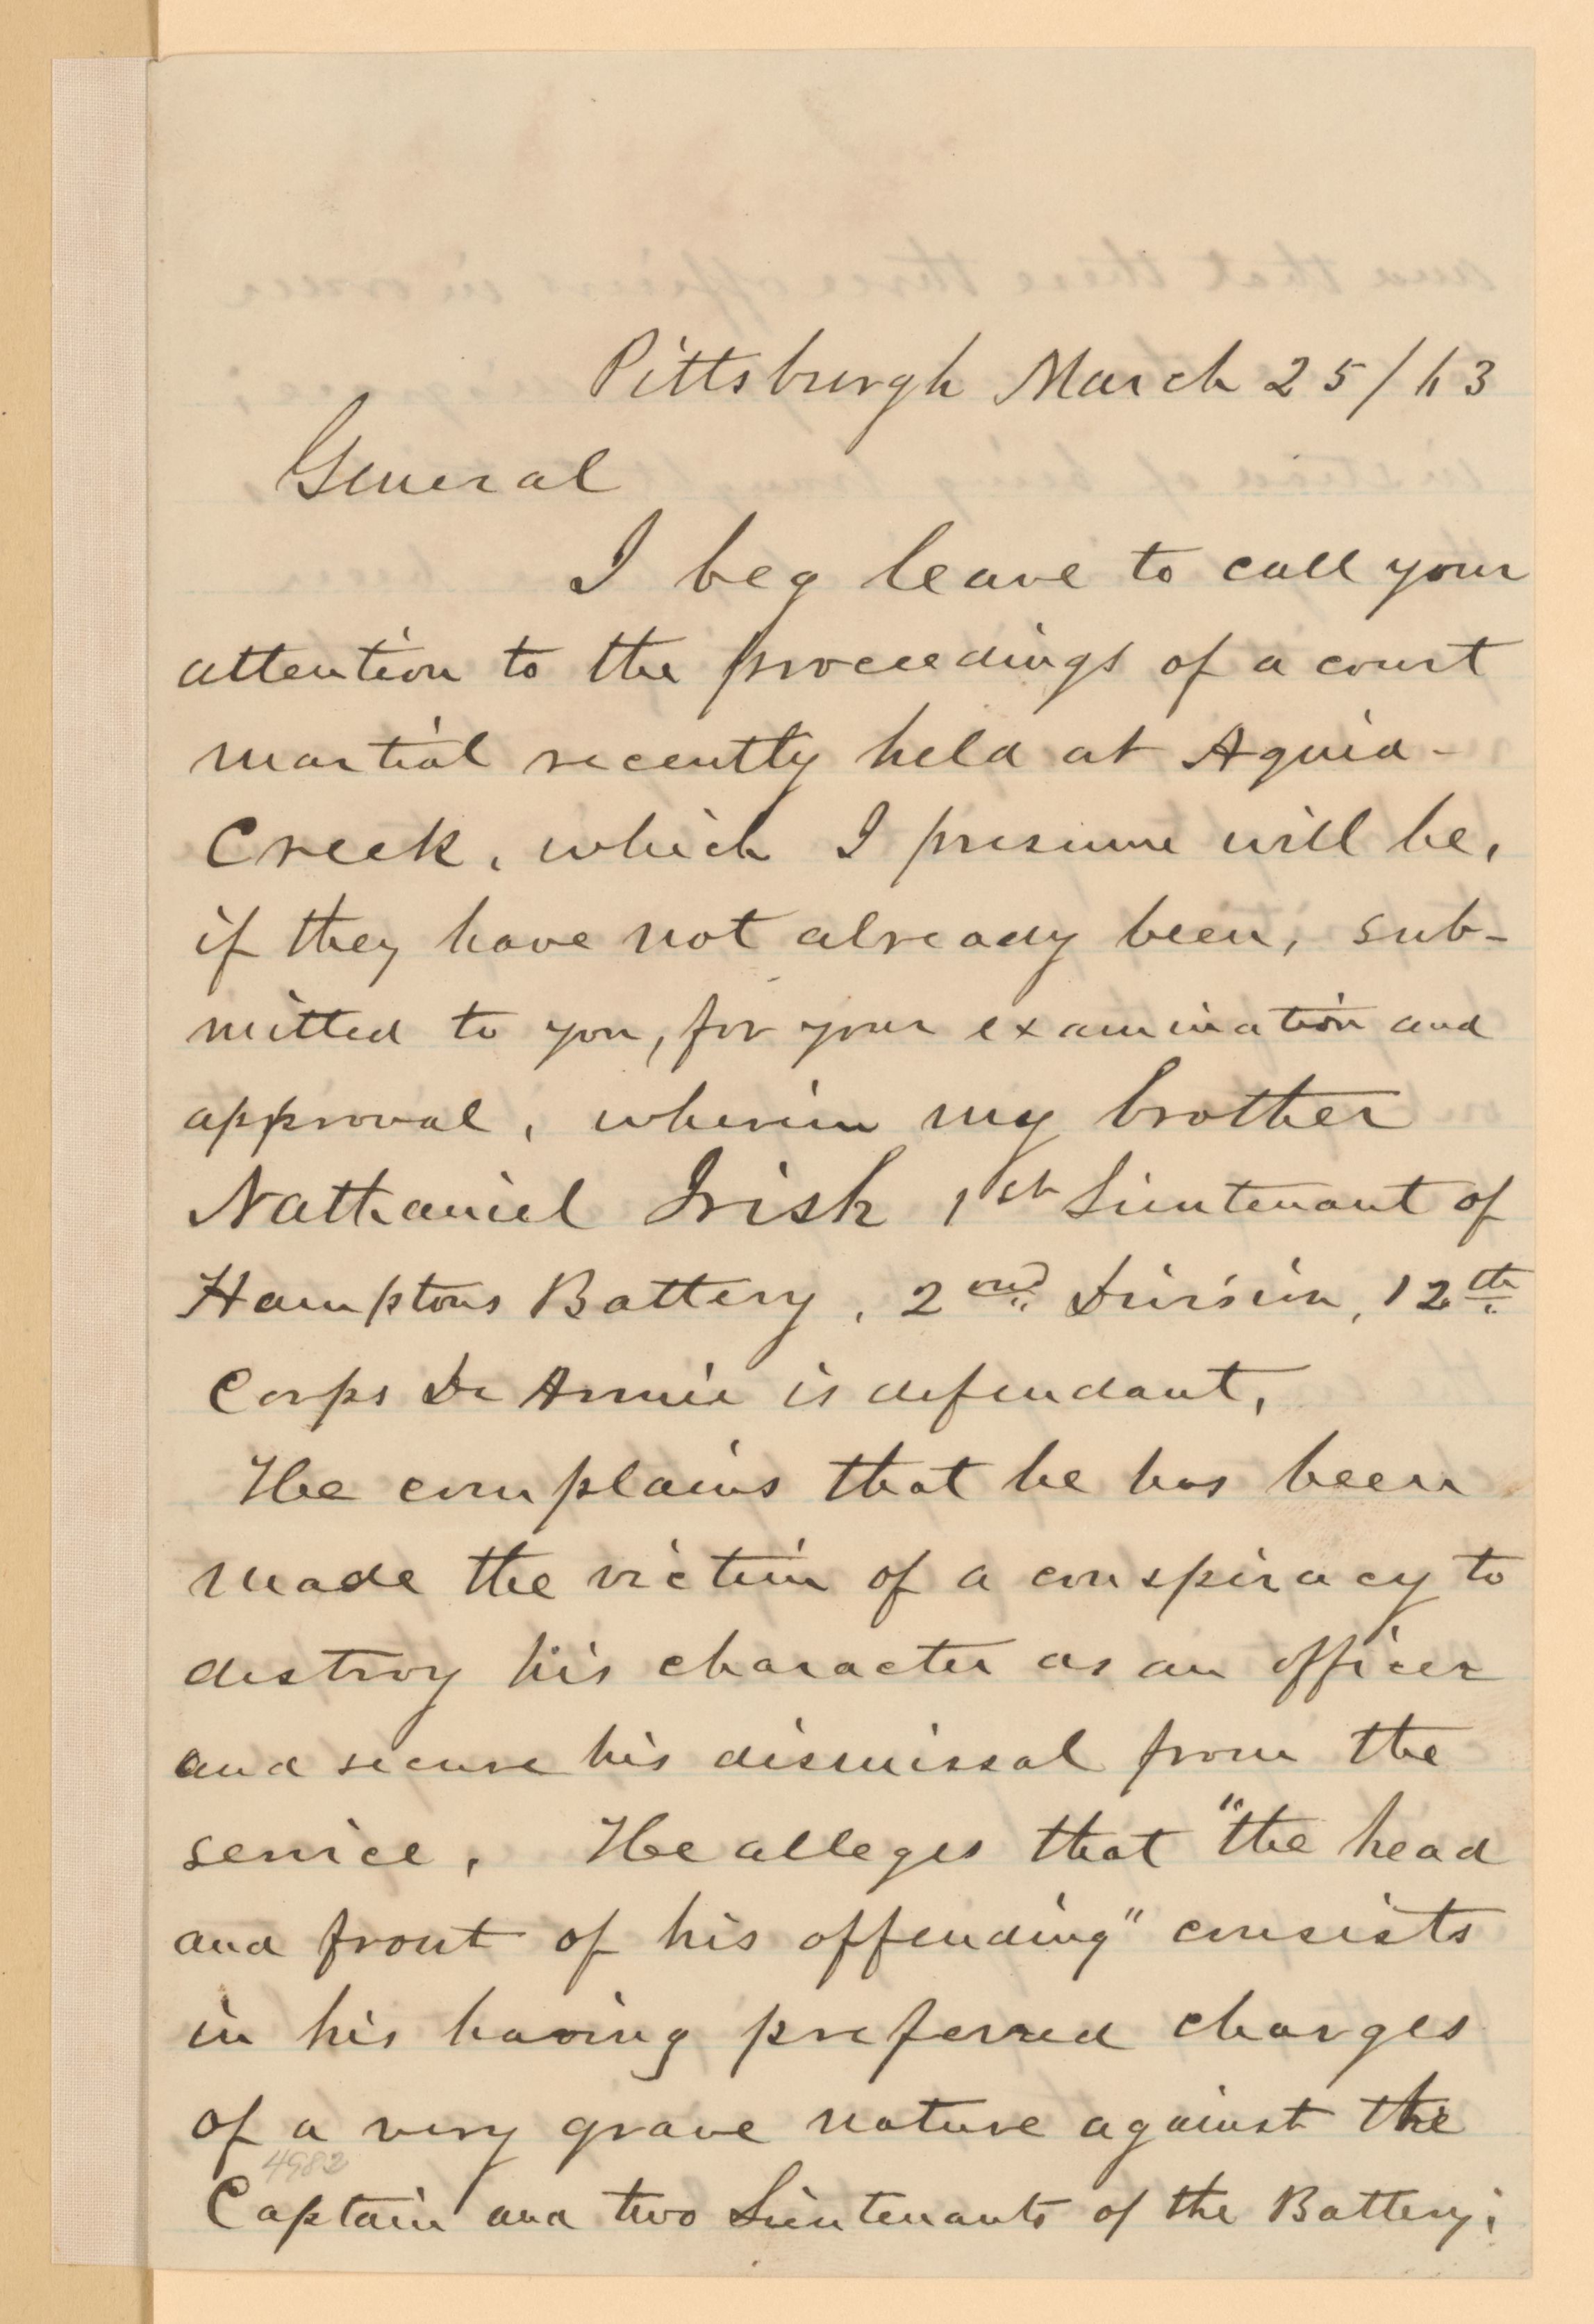 Pittsburgh March 25/63
General
I beg leave to call your
attention to the proceedings of a court
martial recently held at Aquia-
Creek, which I presume will be,
if they have not already been, sub-
mitted to you, for your examination and
approval, wherein my brother
Nathaniel Irish 1st Lieutenant of
Hamptons Battery, 2nd Division, 12th
Corps De Armie is defendant,
He complains that he has been
made the victim of a conspiracy to
destroy his character as an officer
and secure his dismissal from the
service, He alleges that "the head
and front of his offending" consists
in his having preferred charges
of a very grave nature against the
4982
Captain and two Lieutenants of the Battery;